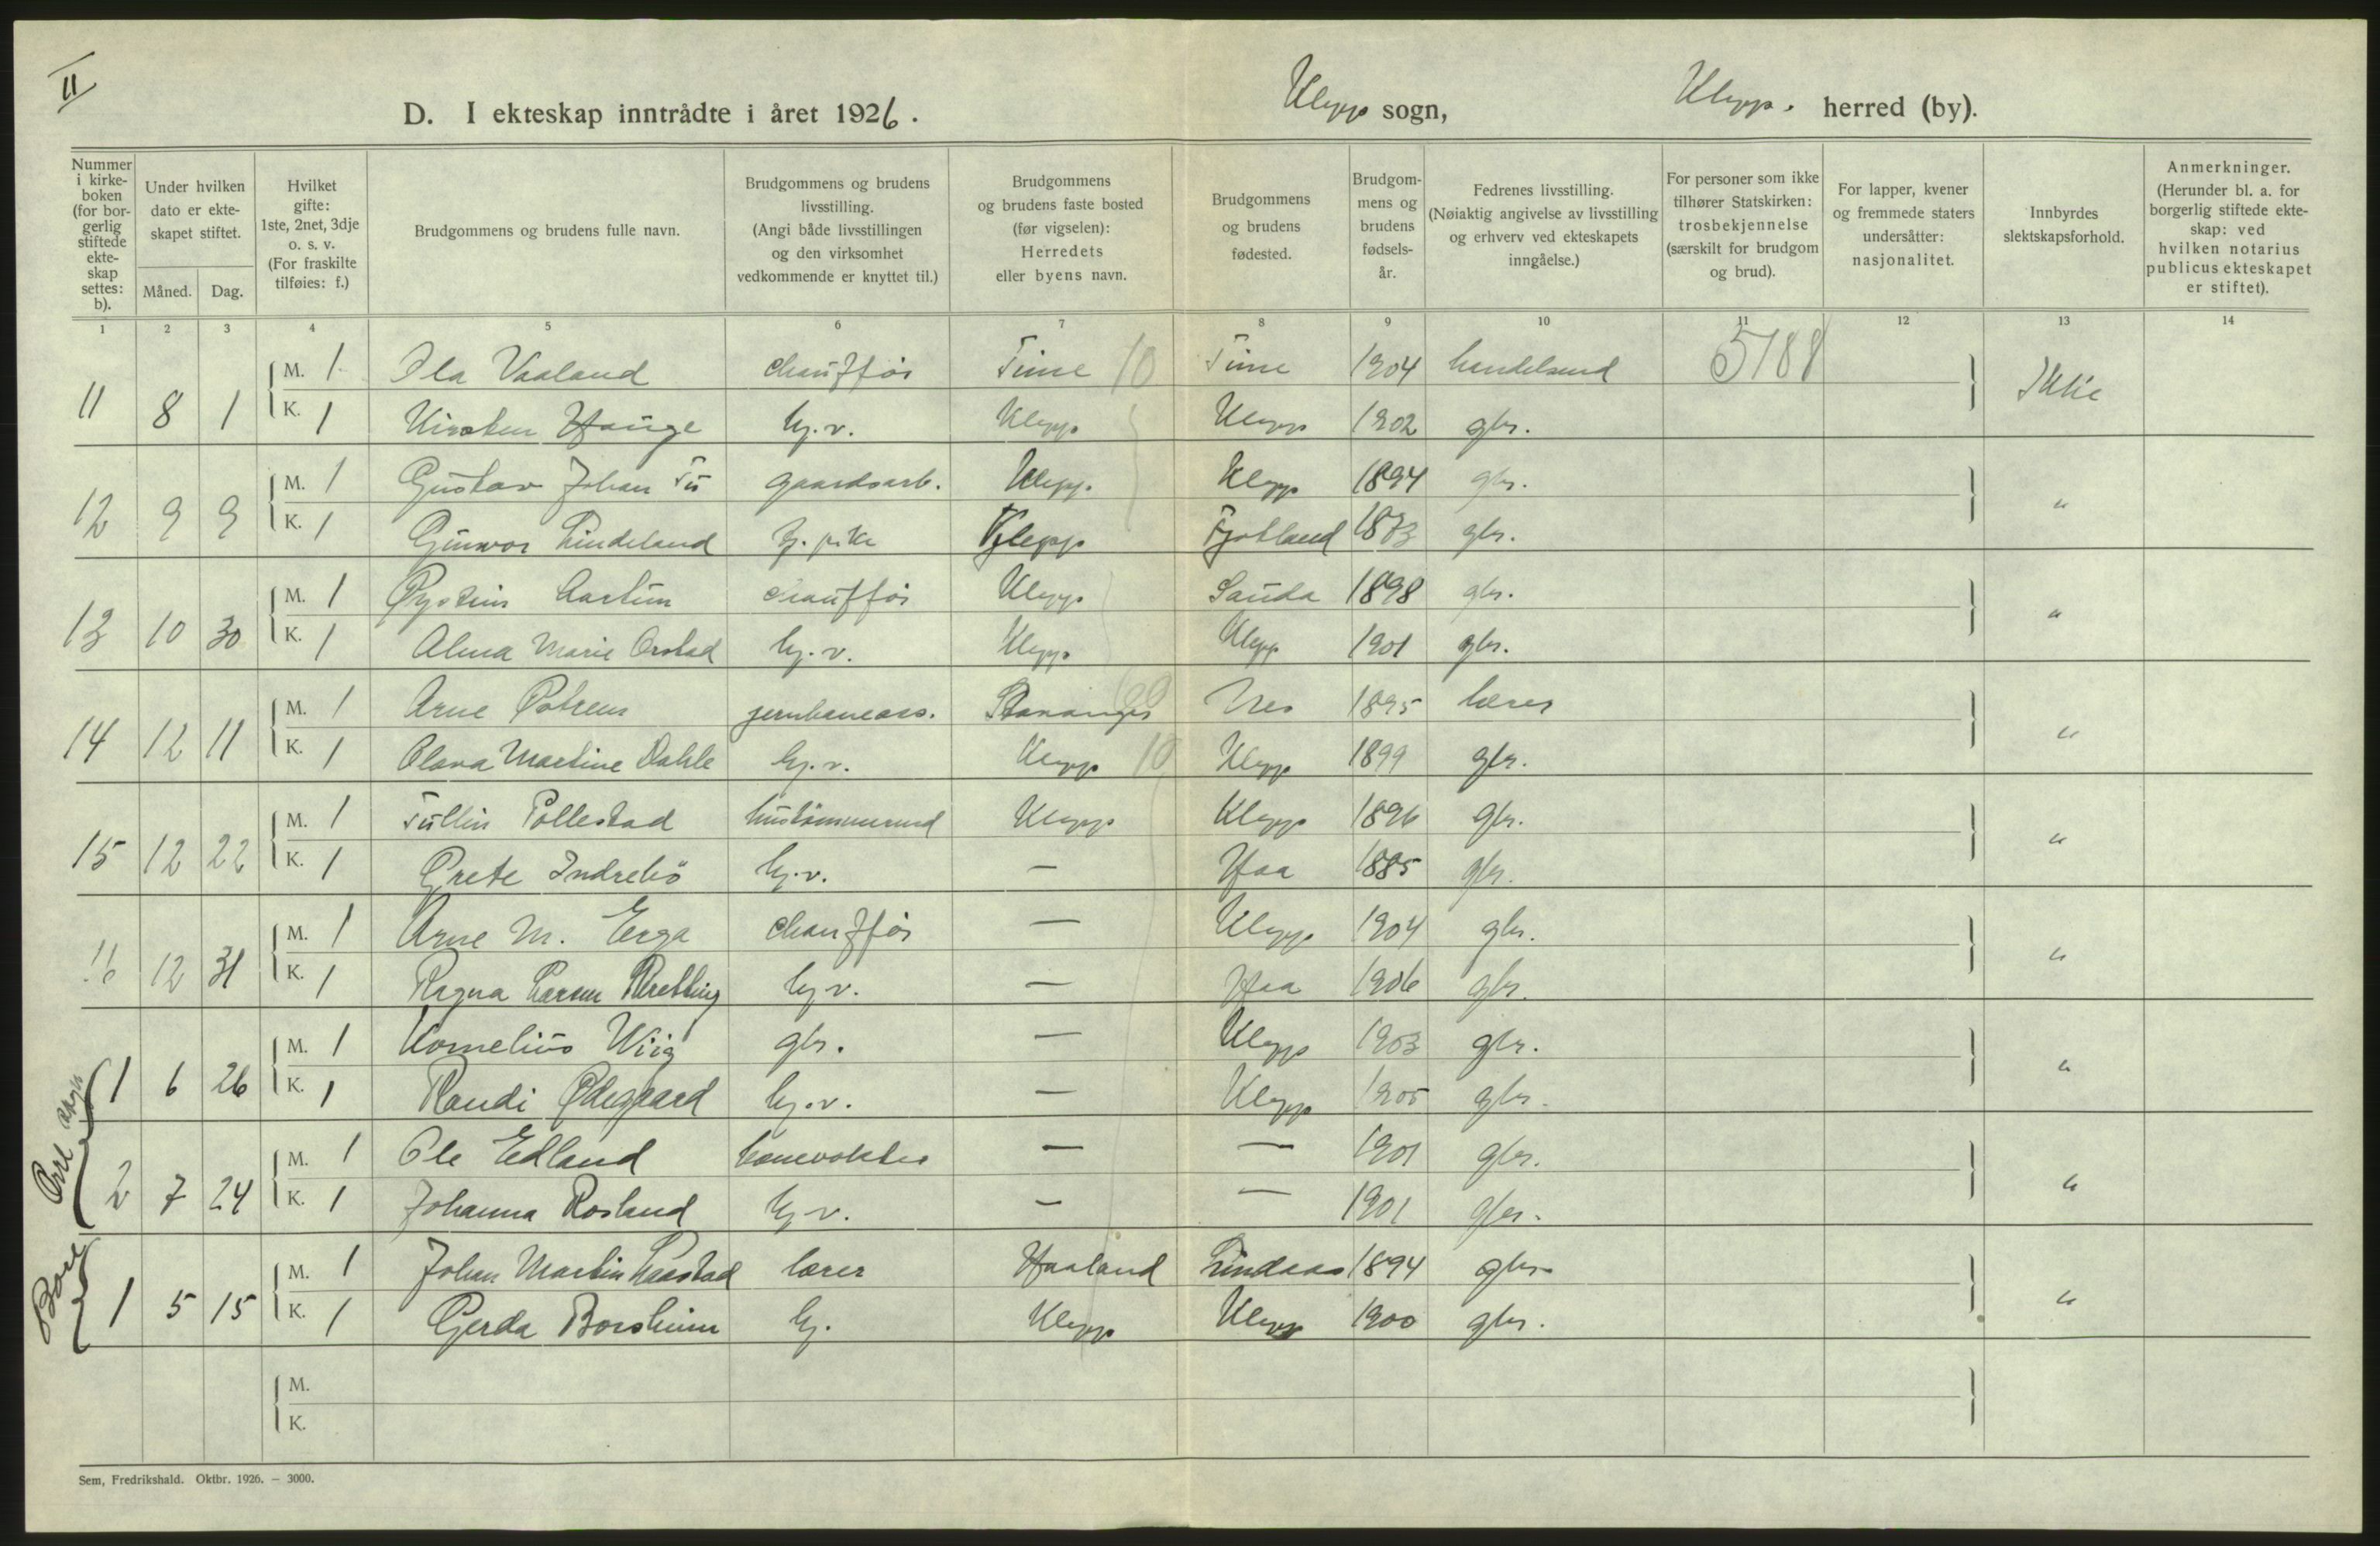 II
D. I ekteskap inntrådte i året 1926. Klepp sogn, Klepp. herred (by).
Nummer i kirke-boken (for bor-gerlig stiftede ekte-skap settes: b).
Under hvilken dato er ekte-skapet stiftet.
Måned. Dag.
Hvilket gifte: 1ste, 2net, 3dje o. s. v. (For fraskilte tilføies: f.)
Brudgommens og brudens fulle navn.
Brudgommens og brudens livsstilling. (Angi både livsstillingen og den virksomhet vedkommende er knyttet til.)
Brudgommens og brudens faste bosted (før vigselen): Herredets eller byens navn.
Brudgommens og brudens fødested.
Brudgom-mens og brudens fødsels-år.
Fedrenes livsstilling. (Nøiaktig angivelse av livsstilling og erhverv ved ekteskapets inngåelse.)
For personer som ikke tilhører Statskirken: trosbekjennelse (særskilt for brudgom og brud).
For lapper, kvener og fremmede staters undersåtter: nasjonalitet.
Innbyrdes slektskapsforhold.
Anmerkninger. (Herunder bl. a. for borgerlig stiftede ekte-skap: ved hvilken notarius publicus ekteskapet er stiftet).
1 2 3 4 5 6 7 8 9 10 11 12 13 14
M. 1 Ola Vaaland chauffør Time 10 Time 1904 handelsmd 5188
11 8 1 K. 1 Kirsten Hauge hj. v. Klepp Klepp 1902 gbr. Ikke
M. 1 Gustav Johan Tu gaardsarb. Klepp. Klepp 1894 gbr.
12 9 9 K. 1 Gunvor Lindeland tj. pike Klepp Fjotland 1873 gbr. "
M. 1 Øystein Aartun chauffør Klepp Sauda 1898 gbr.
13 10 30 K. 1 Alma Marie Orstad hj. v. Klepp Klepp 1901 gbr. "
M. 1 Arne jernbaneass. Stavanger Nes 1895 lærer
14 12 11 K. 1 Olava Martine Dahle hj. v. Klepp 10 Klepp 1899 gbr. "
M. 1 Tullin Pollestad hustømmermd Klepp Klepp 1896 gbr.
15 12 22 K. 1 Grete Indrebö hj. v. — Haa 1885 gbr. "
M. 1 Arne M. Erga chauffør — Klepp 1904 gbr.
16 12 31 K. 1 Ragna Larsen Kretting hj. v. — Haa 1906 gbr. "
M. 1 Kornelius Wiig gbr. — Klepp 1903 gbr.
Orre sogn
1 6 26 K. 1 Randi Ødegaard hj. v. — Klepp 1905 gbr. "
M. 1 Ole Edland banevokter — — 1901 gbr.
2 7 24 K. 1 Johanna Rosland hj. v. — — 1901 gbr. "
Bore
M. 1 Johan Martin Kaastad lærer Haaland Lindaas 1894 gbr.
1 5 15 K. 1 Gerda Borsheim hj. Klepp Klepp 1900 gbr. "
M.
K.
Sem, Fredrikshald. Oktbr. 1926. — 3000.